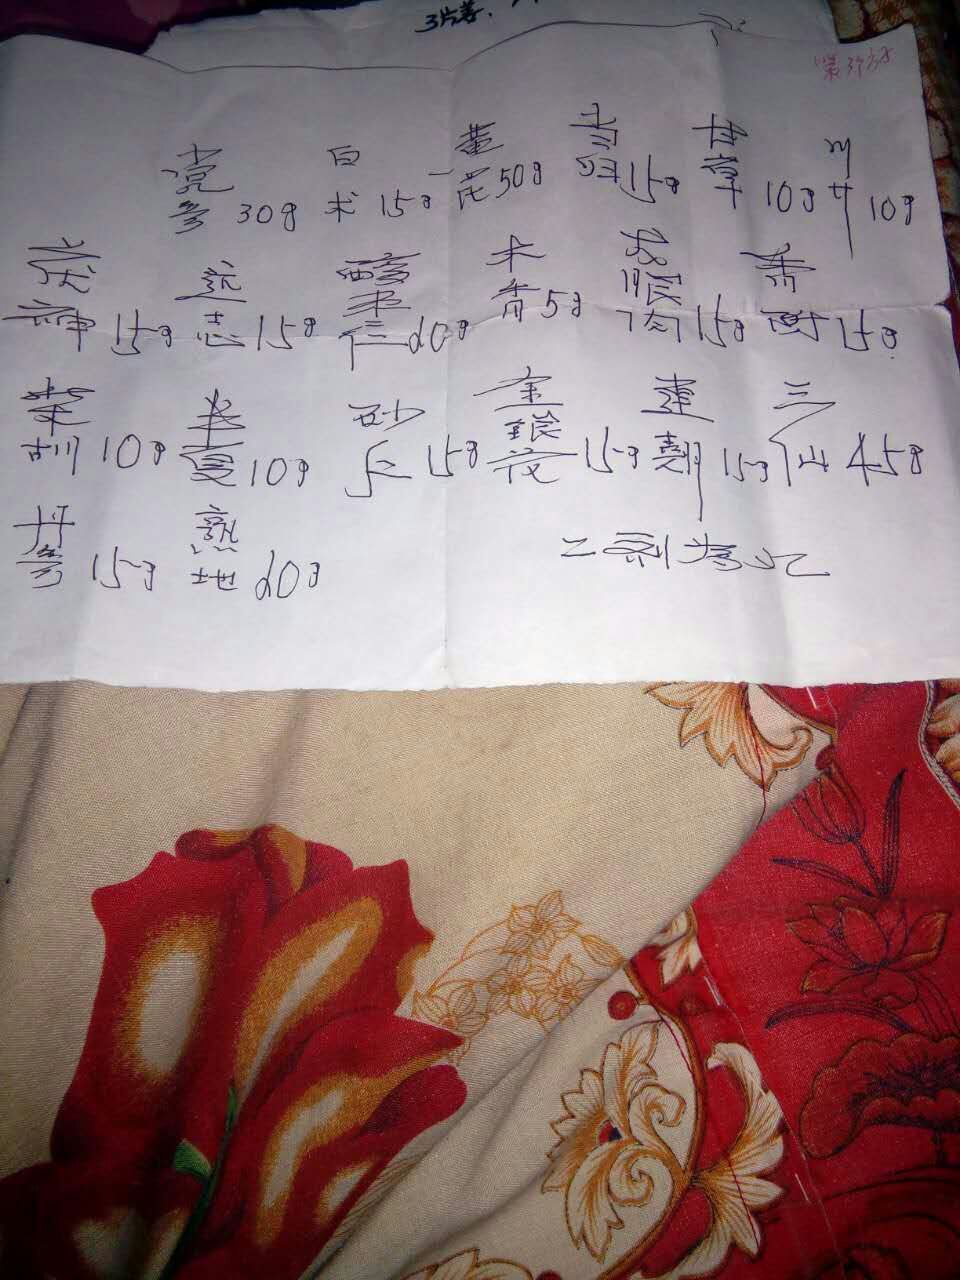 3片姜
第3次方
党参30g 白术15g 黄芪50g 当归15g 甘草10g 川芎10g
茯神15g 远志15g 醇枣仁20g 木香5g 龙眼肉15g 香附15g
柴胡10g 半夏10g 砂仁15g 金银花15g 连翘15g 三仙45g
丹参15g 熟地20g